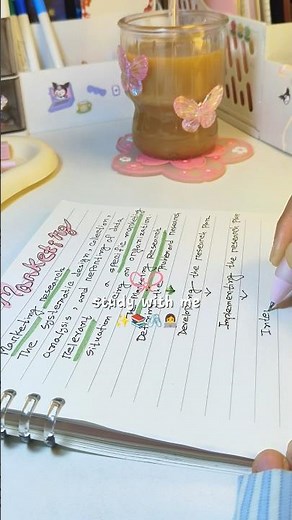 Marketing
Marketing Research
The systematic design, collection,
analysis, and reporting of data
relevant to a specific marketing
situation facing an organization
Research
Developing the research plan
Implementing the research plan
study with me